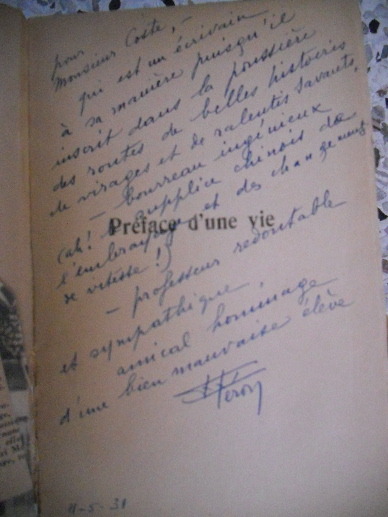 pour
Monsieur Coste, -
qui est un écrivain
à sa manière puisqu'il
inscrit dans la poussière
des routes de belles histoires
de virages et de ralentis savants,
- bourreau ingénieux
(ah! supplice chinois de
l'embrayage et des changements
de vitesse!)
Préface d'une vie
- professeur redoutable
et sympathique,
amical hommage
d'une bien mauvaise élève
11-5-31